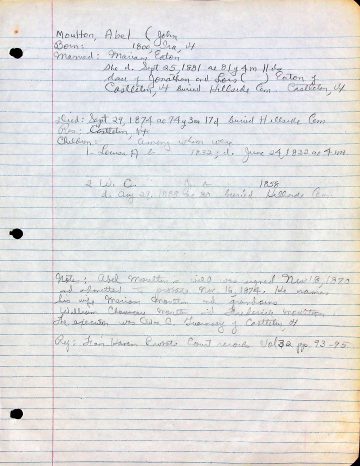 Moulton, Abel (John
Born: 1800, Ira, Vt
Married: Mariam Eaton
She d. Sept 25, 1881 ae 81y 4m 11ds
dau of Jonathan and Lois ( ) Eaton of
Castleton, Vt buried Hillside Cem Castleton, Vt
Died: Sept 29, 1874 ae 74y 3m 17d buried Hillside Cem
Res: Castleton, Vt
Children: among whom were
1. Louisa A b. 1832; d. June 24, 1832 ae 4m
2. W. C. 1858
d. Aug 29, buried Hillside Cem
Note: Abel Moulton's will was signed Nov 18, 1873
and admitted to probate Nov 16, 1874. He names
his wife Mariam Moulton and grandsons
William Chauncey Moulton and Frederick Moulton
The executor was of Castleton, Vt
Ref: Fair Haven Probate Court records Vol 32 pp. 93-95